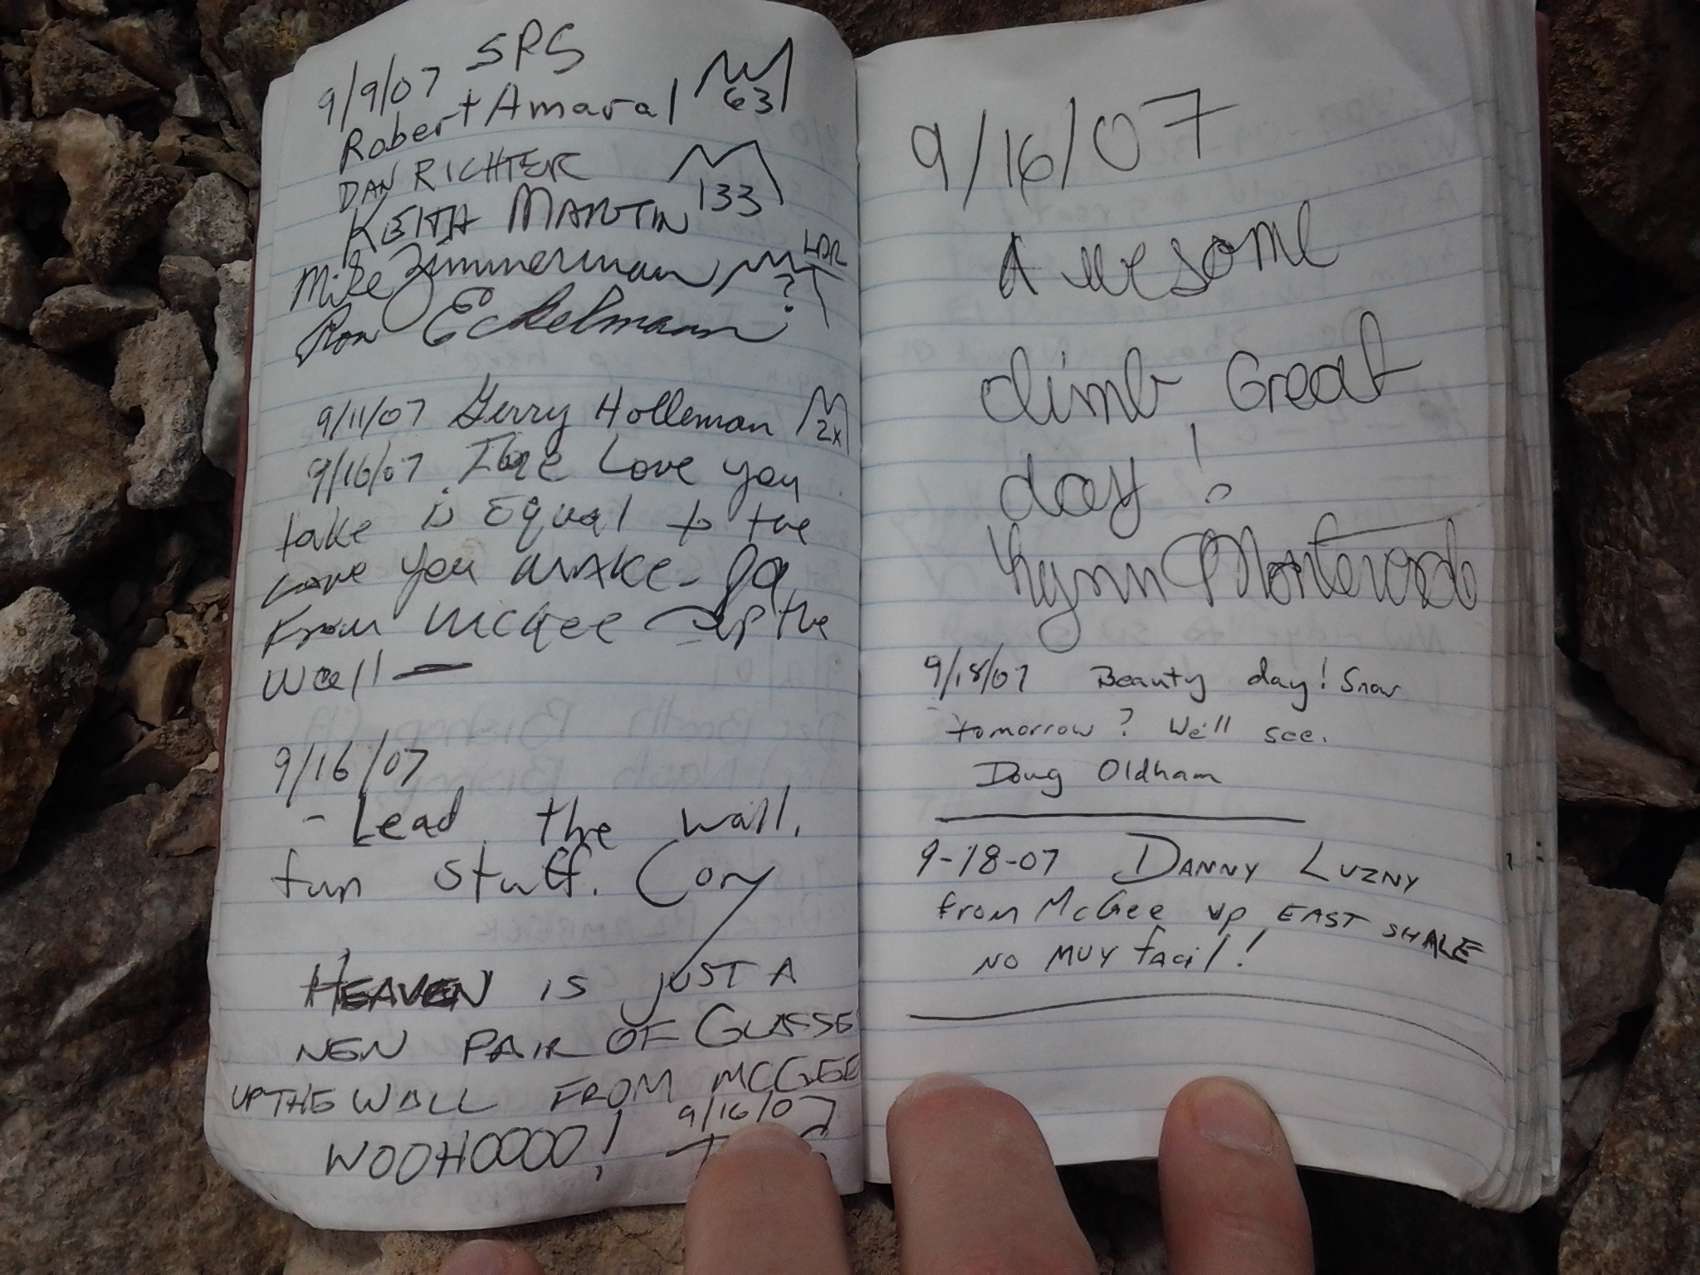 9/9/07 SPS
Robert Amaral 63
DAN RICHTER
KEITH MARTIN 133
Mike Zimmerman LDR
Ron Eckelmann ?
9/11/07 Gerry Holleman 2x
9/16/07 The Love you
take is Equal to the
Love you make -
From McGee up the
wall —
9/16/07
- Lead the wall.
fun stuff. Cory
HEAVEN IS JUST A
NEW PAIR OF GLASSES
UP THE WALL FROM MCGEE
WOOHOOOO! 9/16/07
9/16/07
Awesome
climb Great
day!
Lynn
9/18/07 Beauty day! Snow
tomorrow? We'll see.
Doug Oldham
9-18-07 DANNY LUZNY
from McGee up EAST SHALE
NO MUY facil!